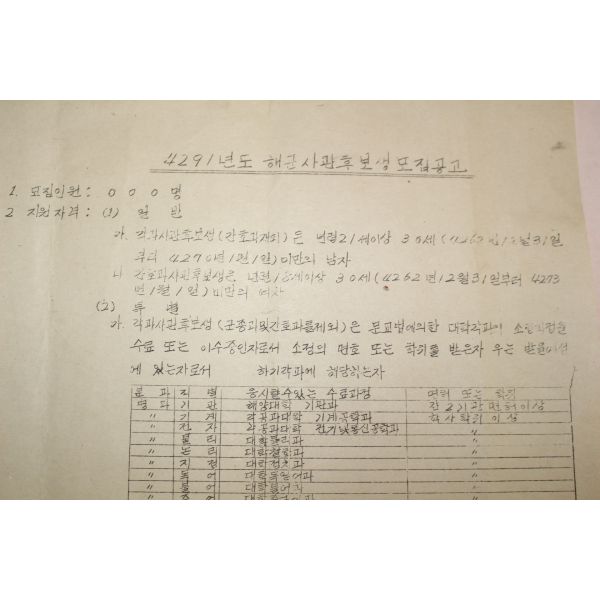 4291년도 해군사관후보생모집공고
1. 모집인원 : 000명
2 지원자격 : (1) 일반
가. 각과사관후보생(간호과제외)은 년령21세이상 30세(4262년12월31일
부터 4270년1월1일)미만의 남자
나 간호과사관후보생은 년령 세이상 30세(4262년12월31일부터 4273
년1월1일)미만의 여자
(2) 특별
가. 각과사관후보생(군종과및간호과를제외)은 문교법에의한 대학각과의 소정과정을
수료 또는 이수중인자로서 소정의 면허 또는 학위를 받은자 우는 받을
에 있는자로서 하기각과에 해당하는자
과 직별 응시할수있는 수료과정 면허 또는 학위
병과 기관 해양대학 기관과 갑2기관면허이상
〃 기계 각공과대학 기계공학과 학사학위이상
〃 전자 각공과대학 전기및통신공학과 〃
〃 물리 대학물리과 〃
〃 논리 대학철학과 〃
〃 대학정치과 〃
〃 독어 대학독일어과 〃
〃 불어 대학불어과 〃
〃 대학 과 〃